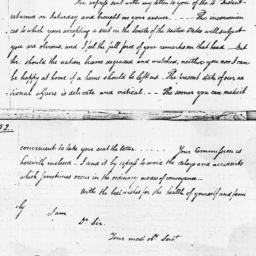 The express sent with my letter to you of the 2d Instant
returned on Saturday and brought me your answer. --- The inconvenien-
ces to which your accepting a seat in the Senate of the United States will subject
you are obvious; and I feel the full force of your remarks on that head --- but
Sir: should the nation become degraded and wretched, neither you nor I can
be happy at home if a home should be left us. The present state of our na-
tional affairs is delicate and critical. --- The sooner you can make it
convenient to take your seat the better. ---- Your Commission is
herewith enclosed --- I send it by express to avoid the delays and accidents
which sometimes occur in the ordinary modes of conveyance.
With the best wishes for the health of yourself and fami
-ly I am
Dr Sir
Your most obt Servt